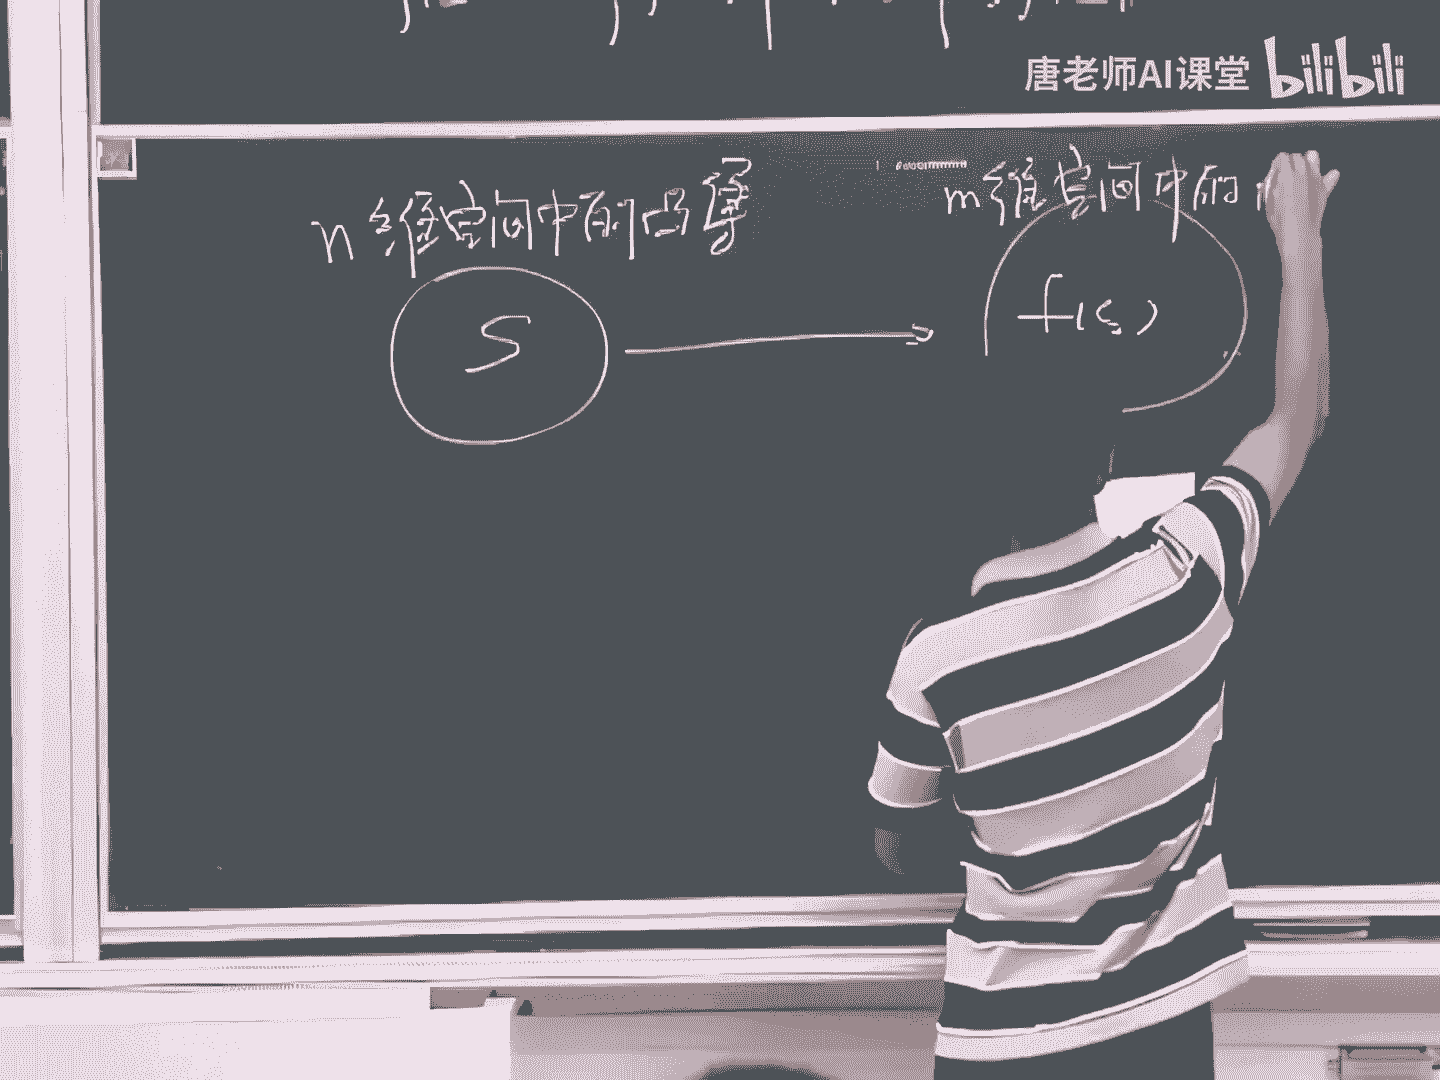 唐老师AI课堂 bilibili
n维空间中的凸集
m维空间中的
S
f(S)